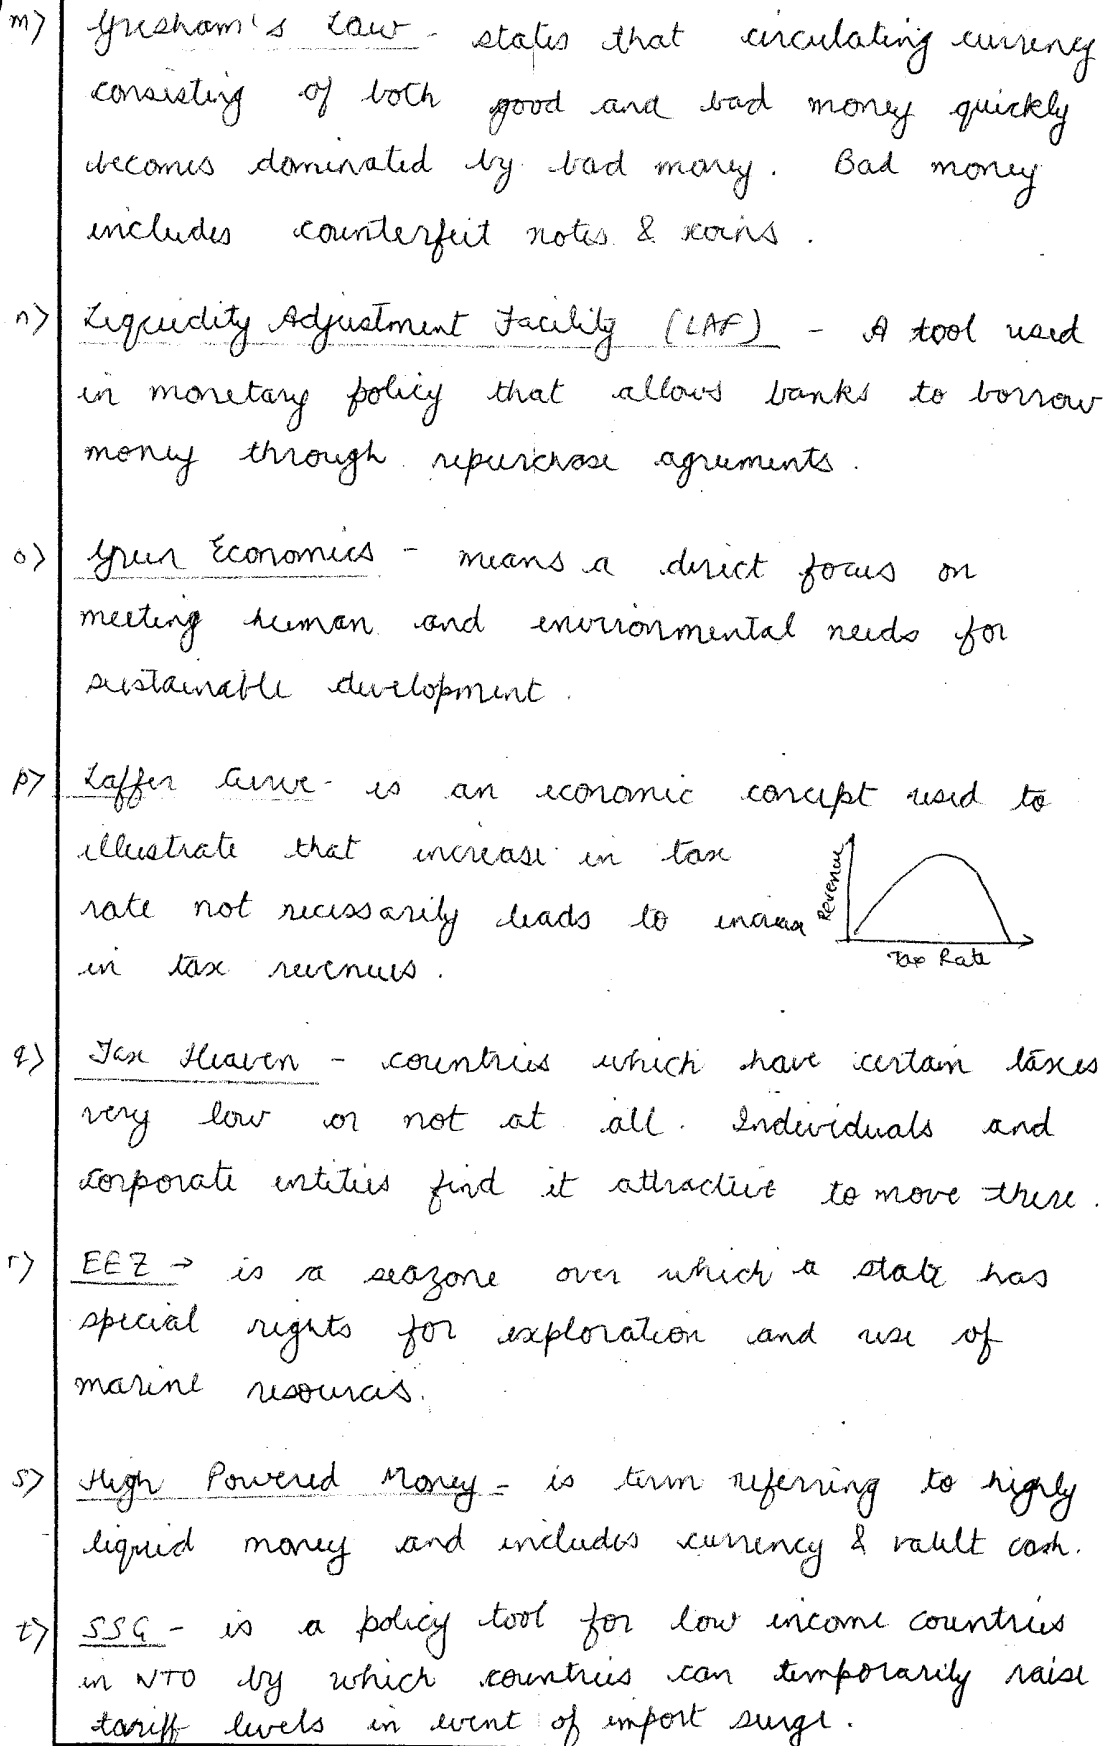 m) Gresham's Law - states that circulating currency
consisting of both good and bad money quickly
becomes dominated by bad money. Bad money
includes counterfeit notes & coins.
n) Liquidity Adjustment Facility (LAF) - A tool used
in monetary policy that allows banks to borrow
money through repurchase agreements.
o) Green Economics - means a direct focus on
meeting human and environmental needs for
sustainable development.
p) Laffer Curve - is an economic concept used to
illustrate that increase in tax
rate not necessarily leads to increase
in tax revenues.
Revenue
Tax Rate
q) Tax Heaven - countries which have certain taxes
very low or not at all. Individuals and
corporate entities find it attractive to move there.
r) EEZ → is a seazone over which a state has
special rights for exploration and use of
marine resources.
s) High Powered Money - is term referring to highly
liquid money and includes currency & vault cash.
t) SSG - is a policy tool for low income countries
in WTO by which countries can temporarily raise
tariff levels in event of import surge.